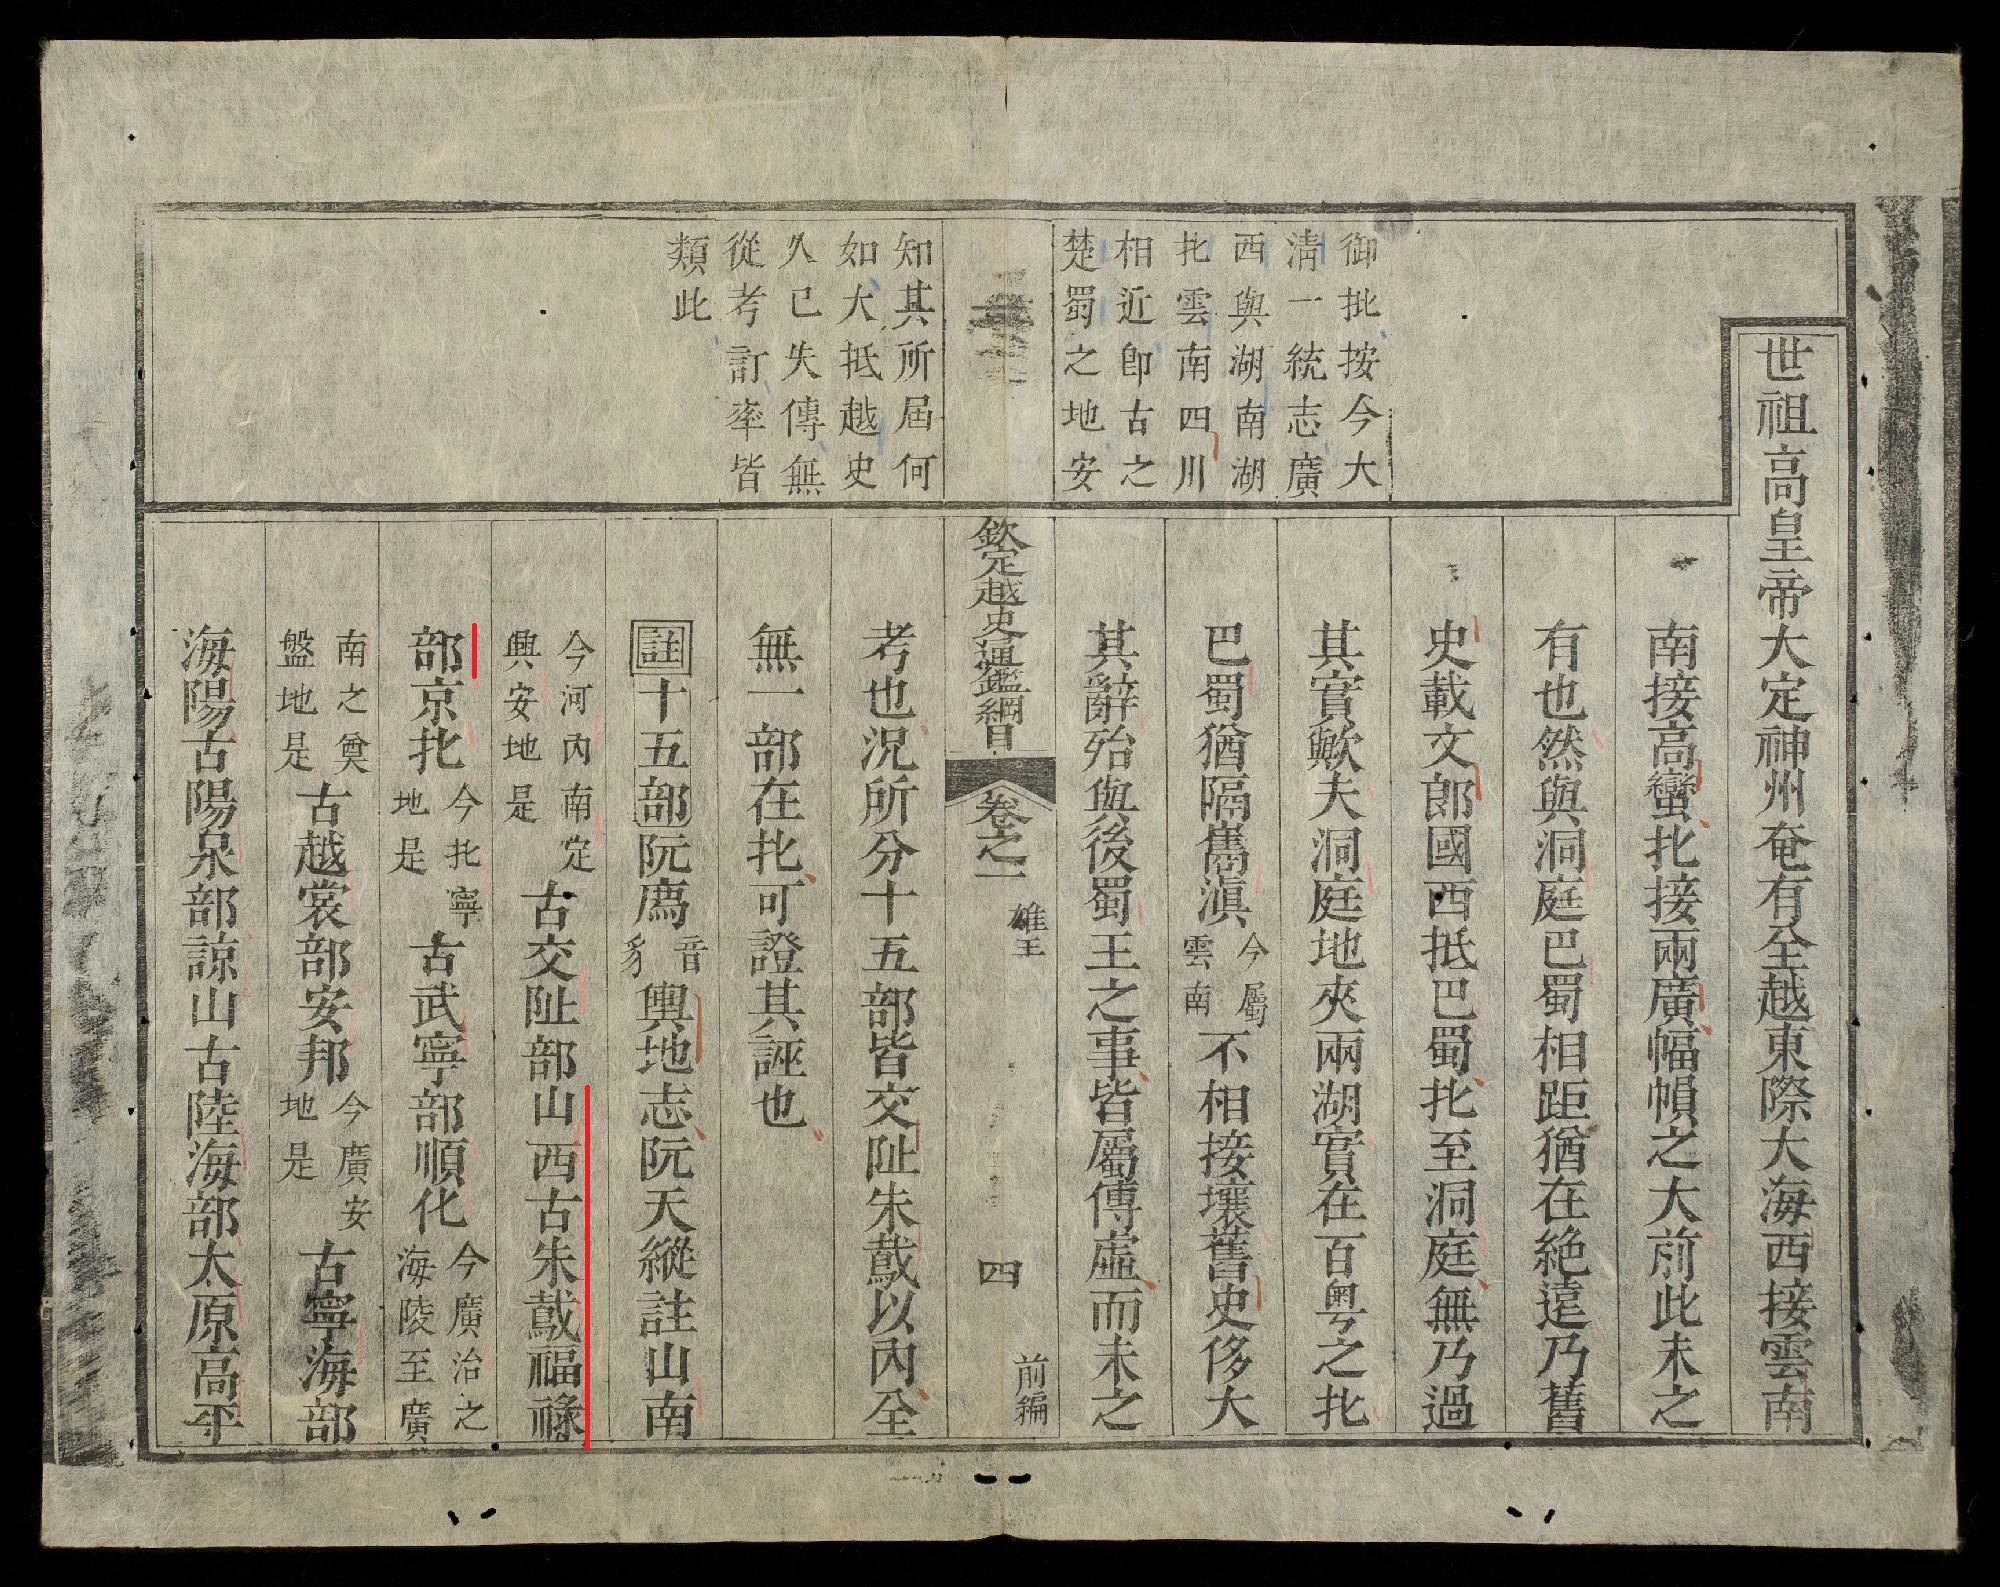 御批按今大
淸一統志廣
西與湖南湖
北雲南四川
相近卽古之
楚蜀之地安
知其所屆何
如大抵越史
久已失傳無
從考訂率皆
類此
世祖高皇帝大定神州奄有全越東際大海西接雲南
南接高蠻北接兩廣幅幀之大前此未之
有也然與洞庭巴蜀相距猶在絕遠乃舊
史載文郎國西抵巴蜀北至洞庭無乃過
其實歟夫洞庭地夾兩湖實在百粤之北
巴蜀猶隔雟滇今屬雲南不相接壤舊史侈大
其辭殆與後蜀王之事皆屬傳虛而未之
欽定越史通鑑綱目 卷之一 雄王 四 前編
考也况所分十五部皆交阯朱䳒以內全
無一部在北可證其誣也
註十五部阮廌音豸輿地志阮天縱註山南
今河內南定興安地是古交阯部山西古朱䳒福祿
部京北今北寧地是古武寧部順化今廣治之海陵至廣
南之奠盤地是古越裳部安邦今廣安地是古寧海部
海陽古陽泉部諒山古陸海部太原高平